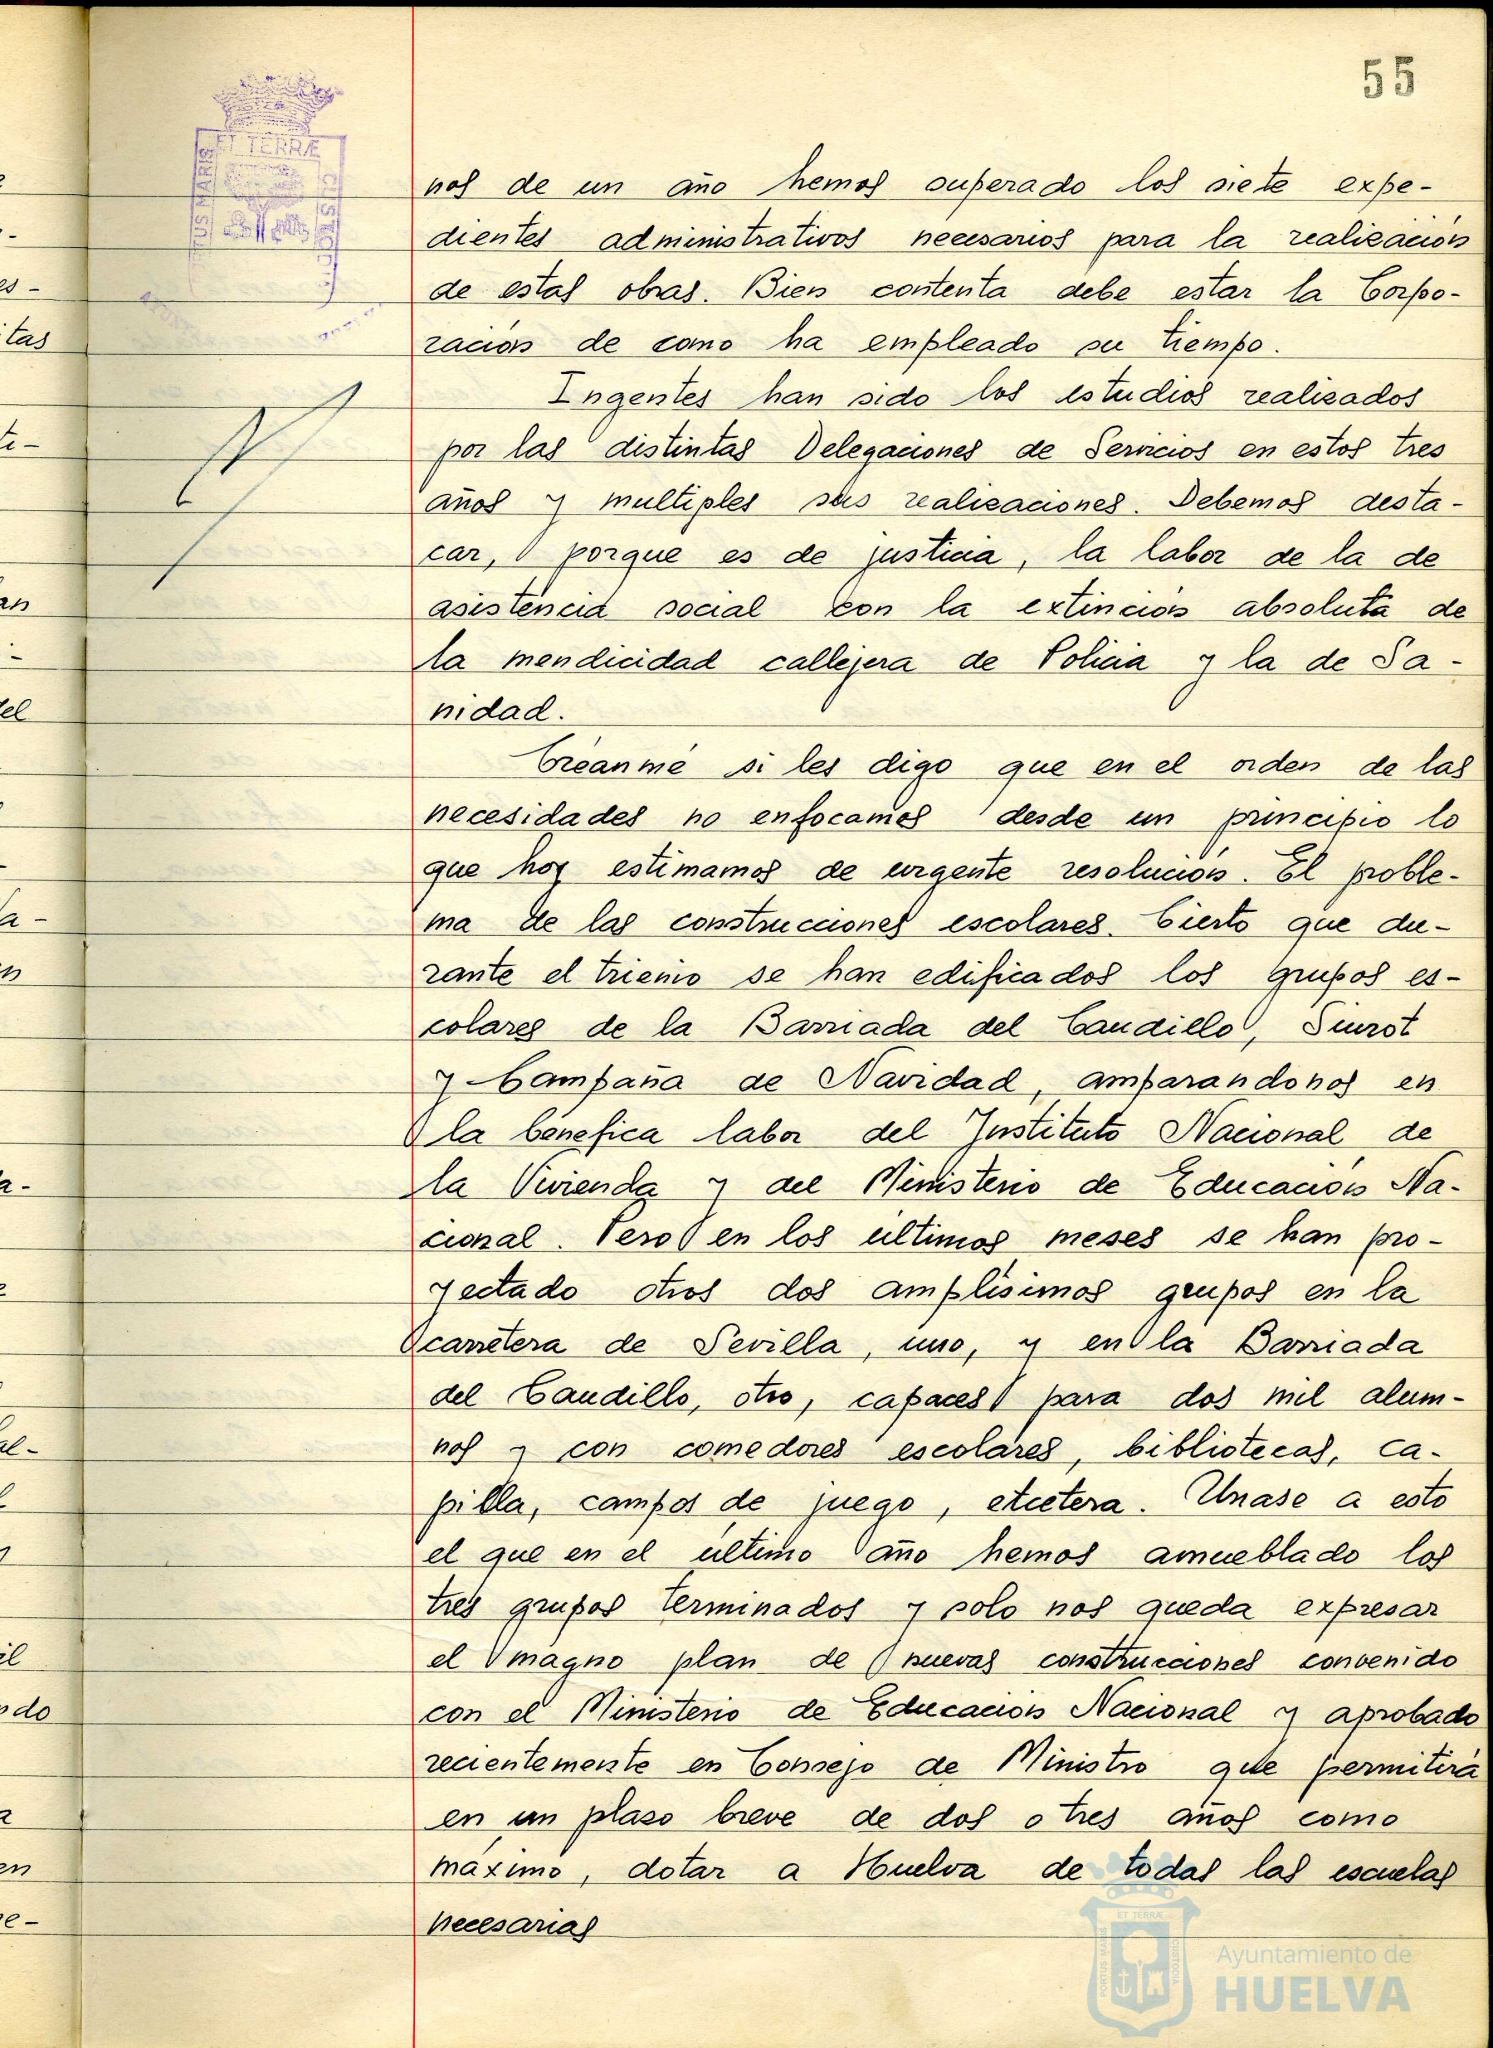 55
ET TERRÆ
nos de un año hemos superado los siete expe-
dientes administrativos necesarios para la realización
de estas obras. Bien contenta debe estar la Corpo-
ración de como ha empleado su tiempo.
Ingentes han sido los estudios realizados
por las distintas Delegaciones de Servicios en estos tres
años y multiples sus realizaciones. Debemos desta-
car, porque es de justicia, la labor de la de
asistencia social con la extinción absoluta de
la mendicidad callejera de Policia y la de Sa-
nidad.
Créanme si les digo que en el orden de las
necesidades no enfocamos desde un principio lo
que hoy estimamos de urgente resolución. El proble-
ma de las construcciones escolares. Cierto que du-
rante el trienio se han edificados los grupos es-
colares de la Barriada del Caudillo, Siurot
y Campaña de Navidad, amparandonos en
la benefica labor del Instituto Nacional de
la Vivienda y del Ministerio de Educación Na-
cional. Pero en los ultimos meses se han pro-
yectado otros dos amplísimos grupos en la
carretera de Sevilla, uno, y en la Barriada
del Caudillo, otro, capaces para dos mil alum-
nos y con comedores escolares, bibliotecas, ca-
pilla, campos de juego, etcetera. Unase a esto
el que en el último año hemos amueblado los
tres grupos terminados y solo nos queda expresar
el magno plan de nuevas construcciones convenido
con el Ministerio de Educación Nacional y aprobado
recientemente en Consejo de Ministro que permitirá
en un plaso breve de dos o tres años como
máximo, dotar a Huelva de todas las escuelas
necesarias
PORTUS MARIS
ET TERRÆ
CUSTODIA
Ayuntamiento de
HUELVA